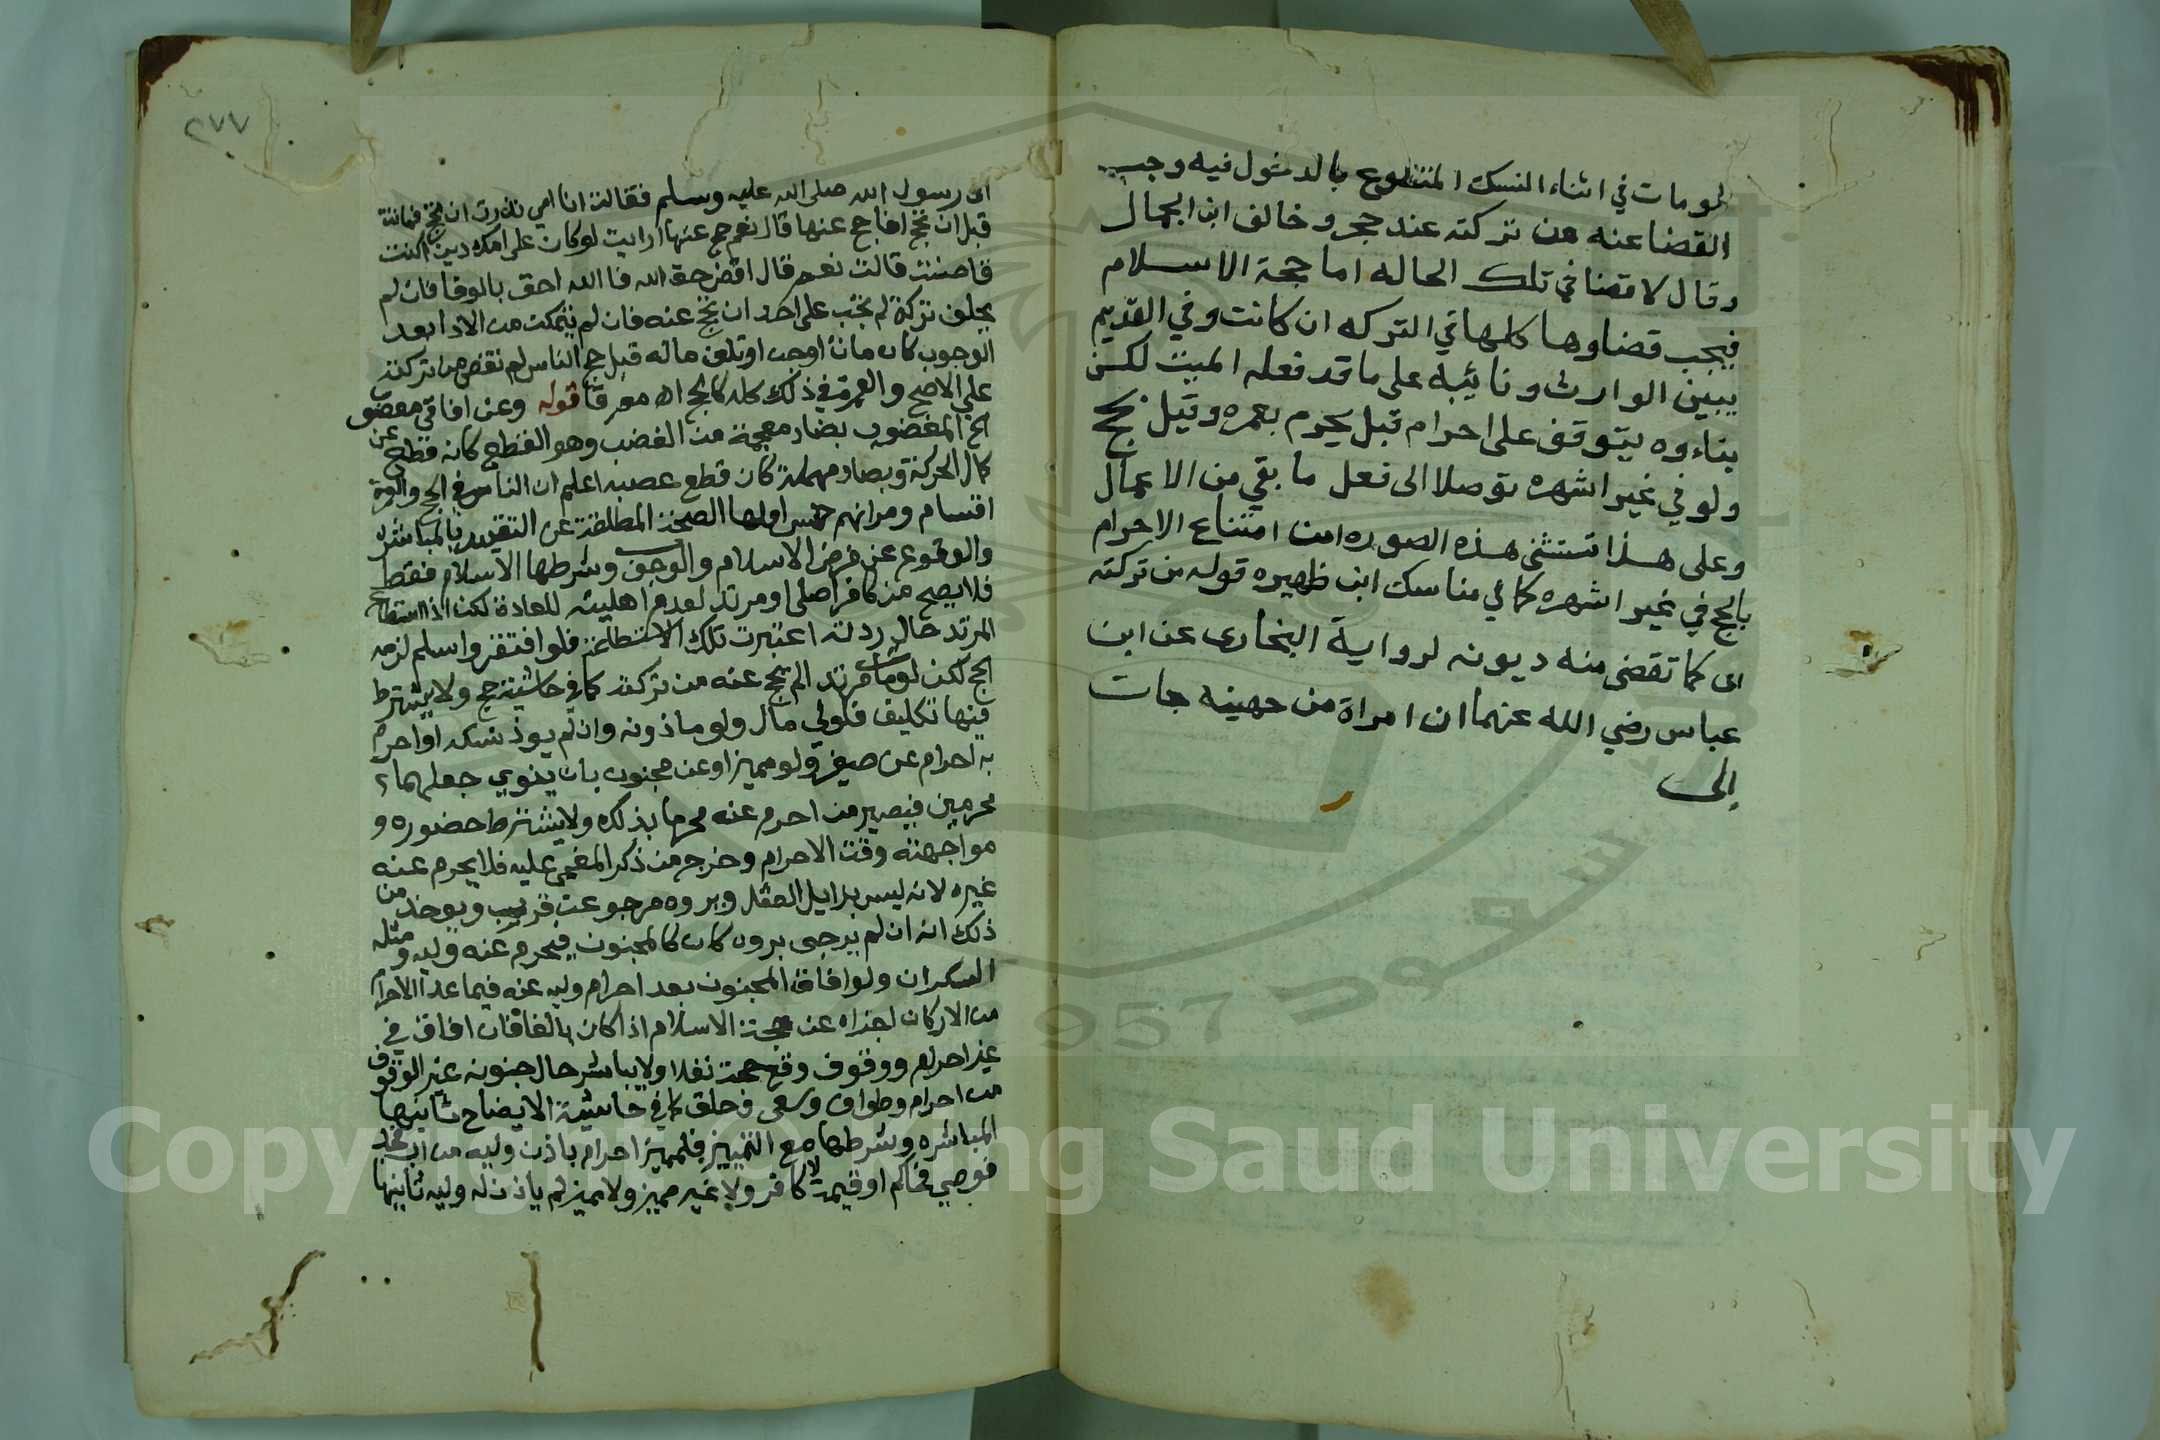 لومات في اثناء النسك المتطوع بالدخول فيه وجب
القضا عنه من تركته عند حجر وخالف ابن الجمال
وقال لا قضا في تلك الحاله اما حجة الاسلام
فيجب قضاوها كلها في التركه ان كانت وفي القديم
يبين الوارث ونائيبه على ما قد فعله الميت لكن
بناءوه يتوقف على احرام قبل يحرم بعمره وقيل بحج
ولو في غير اشهره توصلا الى فعل ما بقي من الاعمال
وعلى هذا تستثنى هذه الصوره من امتناع الاحرام
بالحج في غير اشهره كما في مناسك ابن ظهيره قوله من تركته
اى كما تقضى منه ديونه لرواية البخارى عن ابن
عباس رضي الله عنهما ان امراة من جهينه جات
إلى
٢٧٧
اى رسول الله صلى الله عليه وسلم فقالت ان امي نذرت ان تحج فماتت
قبل ان تحج افاحج عنها قال نعم حج عنها ارايت لو كان على امك دين اكنت
قاضيته قالت نعم قال اقض حق الله فا الله احق بالوفا فان لم
يخلف تركة لم يجب على احد ان يحج عنه فان لم يتمكن من الادا بعد
الوجوب كان مات اوجن او تلف ماله قبل حج الناس لم تقض من تركته
على الاصح والعمرة في ذلك كله كالحج اه قوله وعن افاقي معضوب
الخ المعضوب بضاد معجمة من العضب وهو القطع كانه قطع عن
كمال الحركة وبصاد مهملة كان قطع عصبه اعلم ان الناس في الحج والعمرة
اقسام ومراتبهم خمس اولها الصحة المطلقة عن التقييد بالمباشرة
والوقوع عن فرض الاسلام والوجوب وشرطها الاسلام فقط
فلا يصح من كافر اصلى او مرتد لعدم اهليته للعبادة لكن اذا استطاع
المرتد حال ردته اعتبرت تلك الاستطاعة فلو افتقر واسلم لزمه
الحج لكن لو مات مرتد الم يحج عنه من تركته كما في حاشية حج ولا يشترط
فيها تكليف فلولي مال ولو ماذونه وان لم يود نسكه او احرم
به احرام عن صغير ولو مميز او عن مجنون بان ينوي جعلهما
محرمين فيصير من احرم عنه محرما بذلك ولا يشترط حضوره و
مواجهته وقت الاحرام وخرج من ذكر المغمى عليه فلا يحرم عنه
غيره لانه ليس بزايل العقل وبروه مرجو عن قريب ويوخذ من
ذلك انه ان لم يرجى بروه كان كالمجنون فيحرم عنه وليه ومثله
السكران ولو افاق المجنون بعد احرام وليه عنه فيما عدا الاحرام
من الاركان اجزاه عن حجة الاسلام اذا كان بالغا فان افاق في
غير احرام ووقوف وقع حجته نفلا ولا يباشر حال جنونه غير الوقوف
من احرام وطواف وسعى وحلق كما في حاشية الايضاح ثانيها
المباشره وشرطها مع التمييز فلمميز احرام باذن وليه من اب فجد
فوصي فحاكم او قيمه لا كافر ولا غير مميز ولا مميز لم ياذن له وليه ثالثها